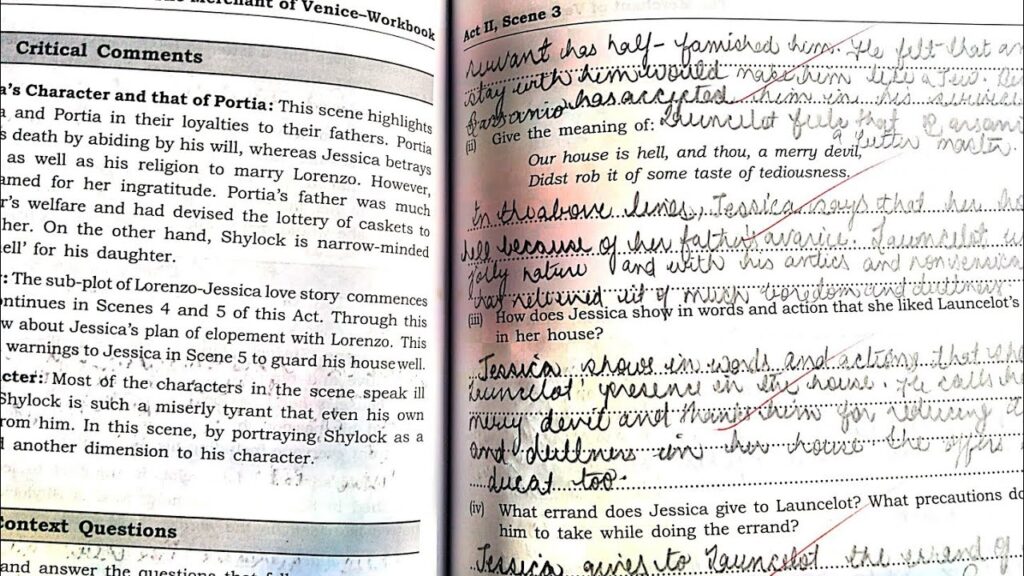 The Merchant of Venice–Workbook
Critical Comments
a's Character and that of Portia: This scene highlights
a and Portia in their loyalties to their fathers. Portia
s death by abiding by his will, whereas Jessica betrays
as well as his religion to marry Lorenzo. However,
amed for her ingratitude. Portia's father was much
r's welfare and had devised the lottery of caskets to
her. On the other hand, Shylock is narrow-minded
ell' for his daughter.
: The sub-plot of Lorenzo-Jessica love story commences
ontinues in Scenes 4 and 5 of this Act. Through this
w about Jessica's plan of elopement with Lorenzo. This
warnings to Jessica in Scene 5 to guard his house well.
acter: Most of the characters in the scene speak ill
Shylock is such a miserly tyrant that even his own
rom him. In this scene, by portraying Shylock as a
d another dimension to his character.
Context Questions
and answer the questions that
Act II, Scene 3
has half-famished him. He felt that
stay with him would make him like a Jew.
Bassanio has accepted him in his service
Launcelot feels that Bassanio
(ii) Give the meaning of:
a better master.
Our house is hell, and thou, a merry devil,
Didst rob it of some taste of tediousness.
In the above lines, Jessica says that her
hell because of her father's avarice. Launcelot
jolly nature and with his antics and
has relieved it of much boredom and dullness
(iii) How does Jessica show in words and action that she liked Launcelot's
in her house?
Jessica shows in words and actions that she
Launcelot' presence in the house. He calls
merry devil and thanks him for reducing
and dullness in her house the offers
ducat too.
(iv) What errand does Jessica give to Launcelot? What precautions do
him to take while doing the errand?
Jessica gives to Launcelot the errand of